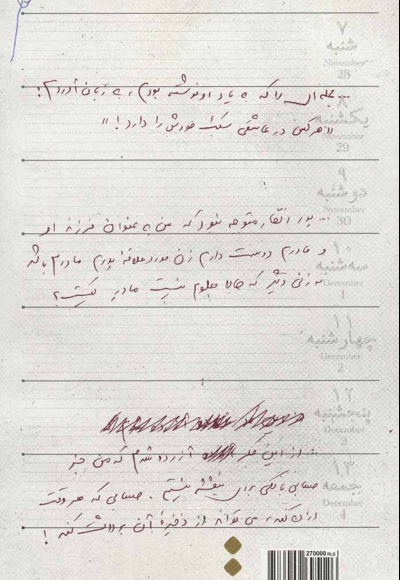 ... جمله‌ای را که به یاد او نوشته بودم، به زبان آوردم:
«هرکس در عاشقی سبک خودش را دارد!»
... پدر انگار متوجه نبود که من به عنوان فرزند او
و مادرم دوست دارم زن مورد علاقه‌ی پدرم مادرم باشد
نه زنی دیگر که حالا معلوم نیست مادر کیست؟
... از این فکر آزرده شدم که من جز
حسابی بانکی برای بنفشه نیستم. حسابی که هر وقت
اراده کند، می تواند از ذخیره‌ی آن برداشت کند!
۷
شنبه
November
28
۸
یکشنبه
November
29
۹
دوشنبه
November
30
۱۰
سه‌شنبه
December
1
۱۱
چهارشنبه
December
2
۱۲
پنجشنبه
December
3
۱۳
جمعه
December
4
270000 RLS